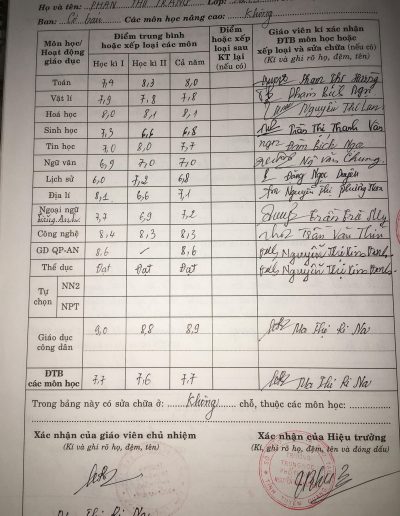 Họ và tên: PHAN THU TRANG Lớp:
Ban: Cơ bản Các môn học nâng cao: Không
Môn học/ Hoạt động giáo dục | Điểm trung bình hoặc xếp loại các môn | Điểm hoặc xếp loại sau KT lại (nếu có) | Giáo viên kí xác nhận ĐTB môn học hoặc xếp loại và sửa chữa (nếu có) (Kí và ghi rõ họ, đệm, tên)
Học kì I | Học kì II | Cả năm
Toán 7,4 8,3 8,0
Vật lí 7,9 7,8 7,8 Phạm Bích Ngọc
Hoá học 8,0 8,1 8,1 Nguyễn Thị Lan
Sinh học 7,3 6,6 6,8 Trần Thị Thanh Vân
Tin học 7,0 8,0 7,7 Bích Nga
Ngữ văn 6,9 7,0 7,0 Ngô Văn Chung
Lịch sử 6,0 7,2 6,8 Đặng Ngọc Duyên
Địa lí 8,1 6,6 7,1 Nguyễn Thị Phương
Ngoại ngữ Tiếng Anh 7,7 6,9 7,2 Trần Trà My
Công nghệ 8,4 8,3 8,3 Trần Văn Thìn
GD QP-AN 8,6 / 8,6 Nguyễn Thị Kim
Thể dục Đạt Đạt Đạt Nguyễn Thị Kim
Tự chọn NN2
NPT
Giáo dục công dân 9,0 8,8 8,9 Ma Thị Li Na
ĐTB các môn học 7,7 7,6 7,7 Ma Thị Li Na
Trong bảng này có sửa chữa ở: Không chỗ, thuộc các môn học:
Xác nhận của giáo viên chủ nhiệm Xác nhận của Hiệu trưởng
(Kí và ghi rõ họ, đệm, tên) (Kí, ghi rõ họ, đệm, tên và đóng dấu)